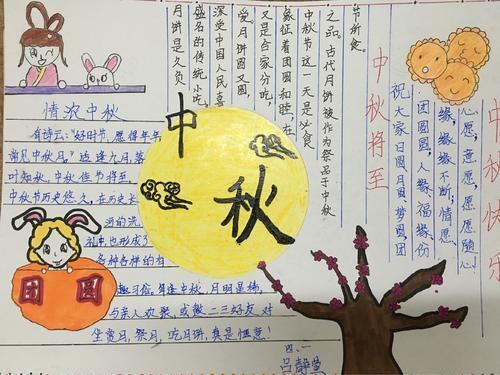 中秋快乐
心愿，意愿，愿愿随心！
缘，缘缘不断；情愿
团圆圆；人缘福缘份
祝大家日圆月圆，梦圆团
中秋将至
节所食
之品。古代月饼被作为祭品于中秋
中秋节这一天是必食
象征着团圆和睦，在
又是合家分吃，
爱。月饼圆又圆，
深受中国人民喜
盛名的传统小吃，
月饼是久负
情浓中秋
有诗云："好时节，愿得年年
常见中秋月。"适逢九月，落
叶知秋，中秋佳节将至
中秋节历史悠久，在历史长
河的洗
礼中也形成了
多种各样的
趣习俗。每逢中秋，月明星稀，
与亲人欢聚，或邀二三好友，对
坐赏月，祭月，吃月饼，真是惬意！
中秋
团圆
四、一